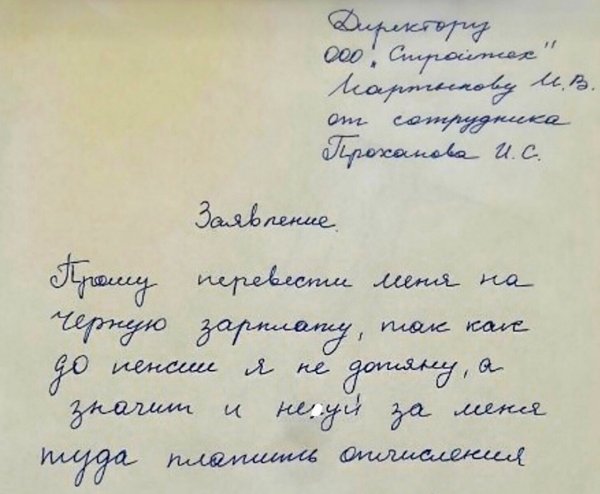 Директору
ООО „Стройтех"
Мартынову И.В.
от сотрудника
Проханова И.С.
Заявление.
Прошу перевести меня на
черную зарплату, так как
до пенсии я не дотяну, а
значит и не.уй за меня
туда платить отчисления